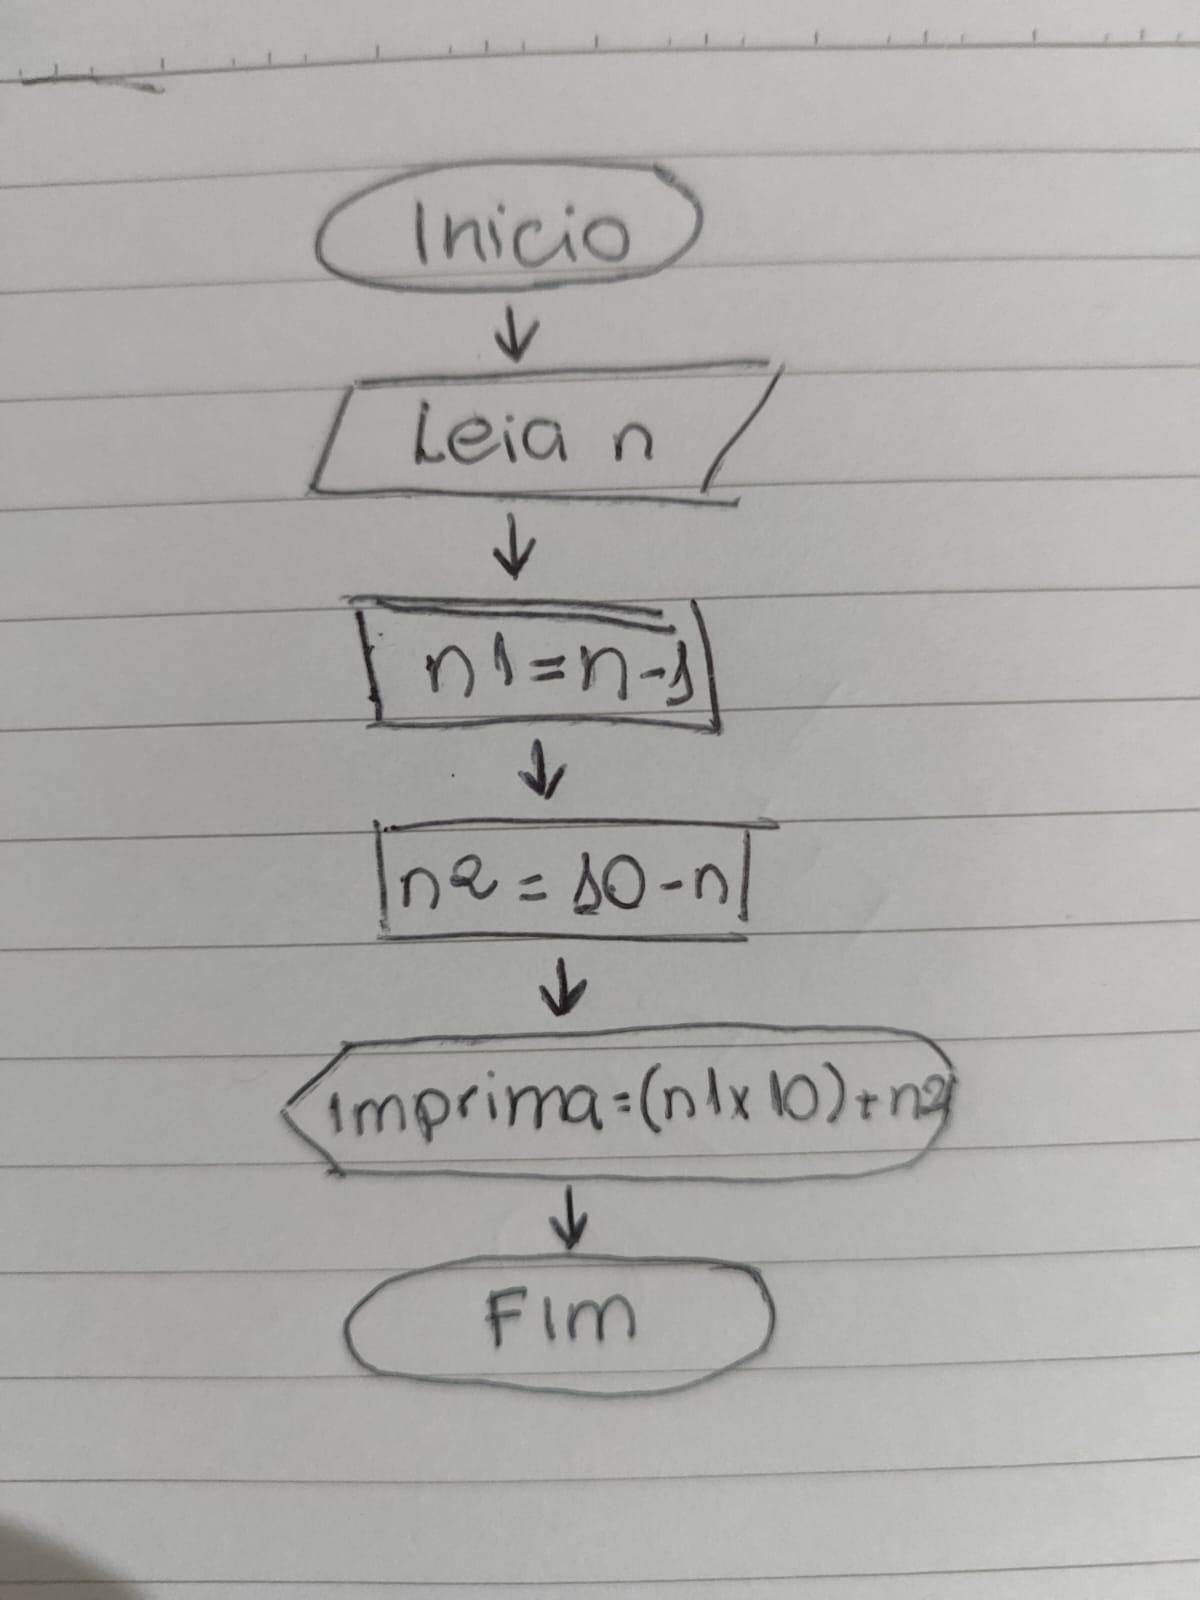 Inicio
Leia n
n1=n-1
n2=10-n
Imprima=(n1x10)+n2
Fim